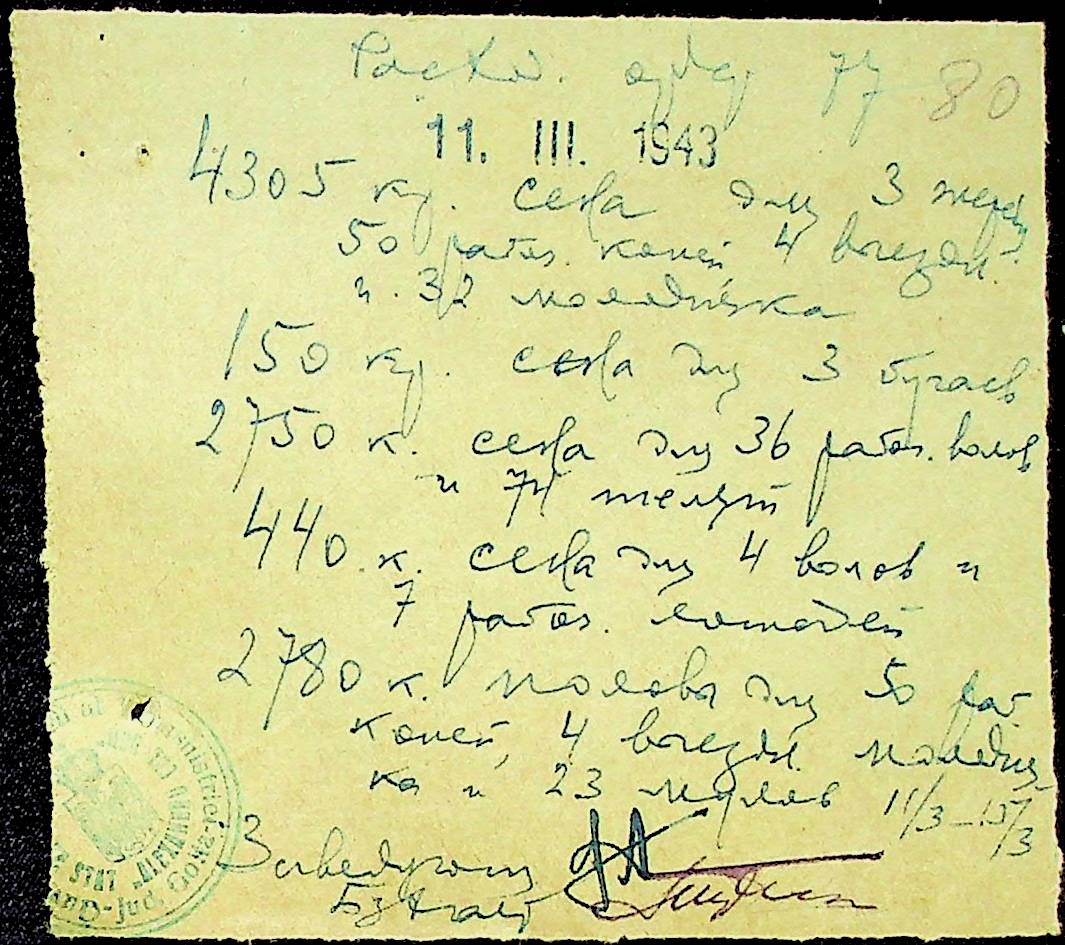 77 80
11. III. 1943
4305 кг. сена для 3 жереб
50 рабоч. коней, 4 выездн.
и 32 молодняка
150 кг. сена для 3 бугаев
2750 к. сена для 36 рабоч. волов
и 74 телят
440 к. сена для 4 волов и
7 рабоч. лошадей
2780 к. половы для 50 раб.
коней, 4 выездн. молодня
ка и 23 11/3 – 15/3
Заведующ
Jud.